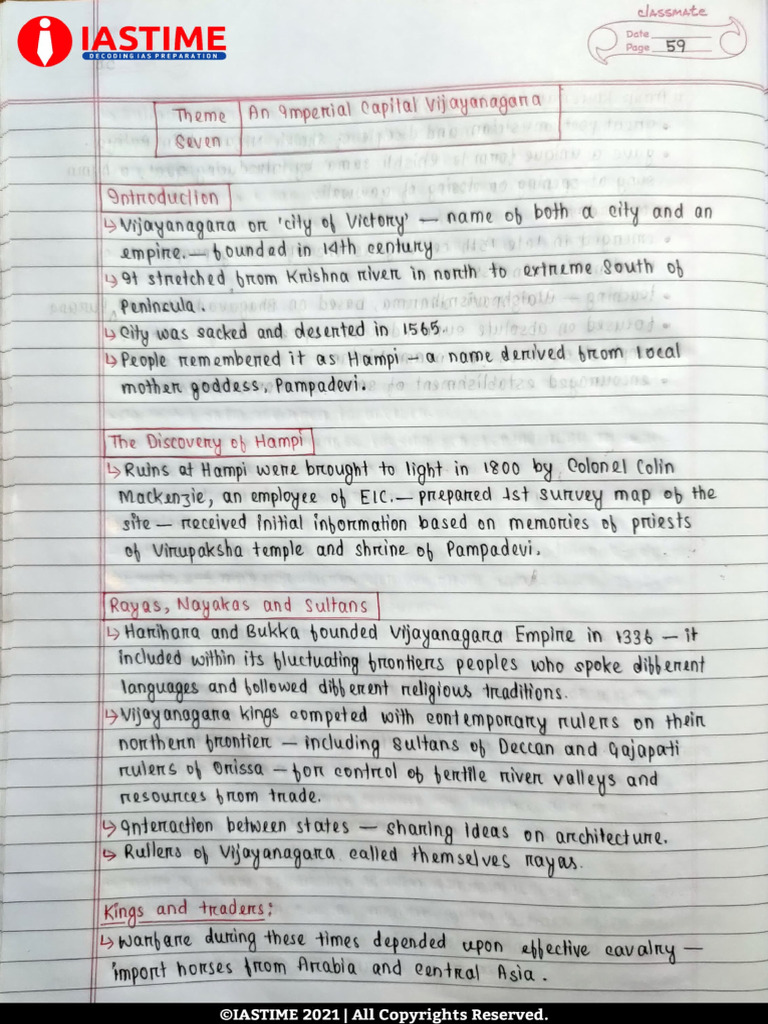 classmate
IASTIME
DECODING IAS PREPARATION
Date
Page 59
Theme Seven | An Imperial Capital Vijayanagara
Introduction
↳ Vijayanagara or 'city of Victory' — name of both a city and an
empire. — founded in 14th century
↳ It stretched from Krishna river in north to extreme South of
Peninsula.
↳ City was sacked and deserted in 1565.
↳ People remembered it as Hampi — a name derived from local
mother goddess, Pampadevi.
The Discovery of Hampi
↳ Ruins at Hampi were brought to light in 1800 by Colonel Colin
Mackenzie, an employee of EIC. — prepared 1st survey map of the
site — received initial information based on memories of priests
of Virupaksha temple and shrine of Pampadevi.
Rayas, Nayakas and Sultans
↳ Harihara and Bukka founded Vijayanagara Empire in 1336 — it
included within its fluctuating frontiers peoples who spoke different
languages and followed different religious traditions.
↳ Vijayanagara kings competed with contemporary rulers on their
northern frontier — including Sultans of Deccan and Gajapati
rulers of Orissa — for control of fertile river valleys and
resources from trade.
↳ Interaction between states — sharing ideas on architecture.
↳ Rullers of Vijayanagara called themselves rayas.
Kings and traders:
↳ Warfare during these times depended upon effective cavalry —
import horses from Arabia and central Asia.
©IASTIME 2021 | All Copyrights Reserved.